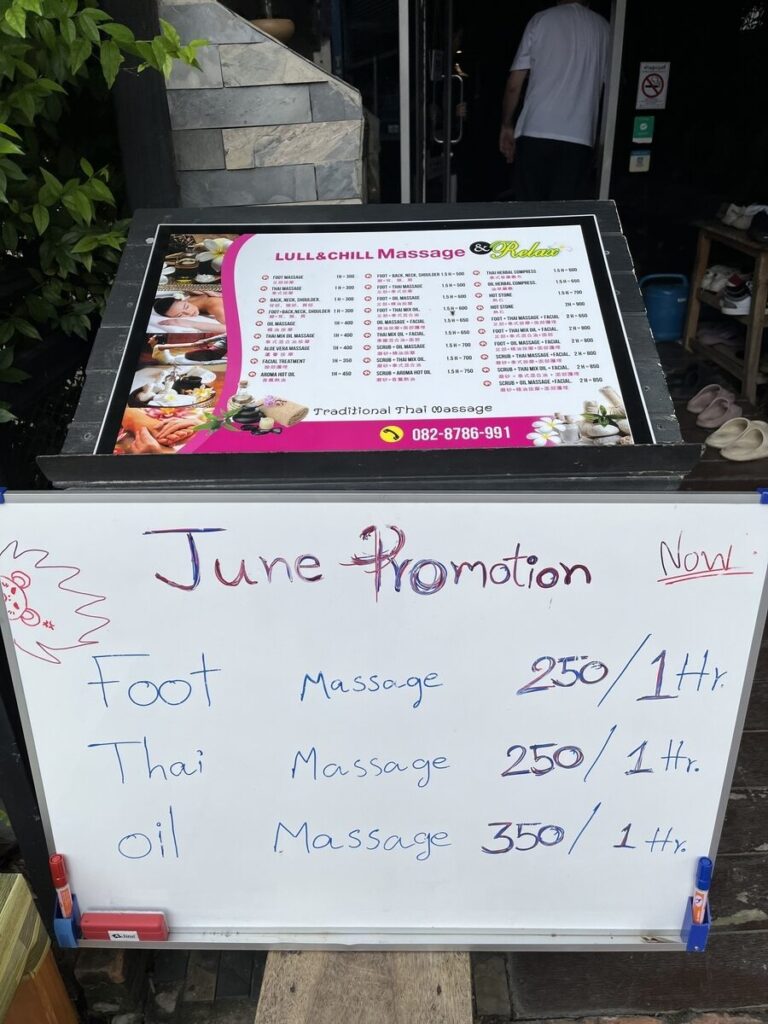 LULL&CHILL Massage & Relax
FOOT MASSAGE 1H = 300
足部按摩
THAI MASSAGE 1H = 300
泰式按摩
BACK, NECK, SHOULDER. 1H = 300
FOOT+BACK, NECK, SHOULDER 1H = 300
OIL MASSAGE 1H = 400
精油按摩
THAI MIX OIL MASSAGE 1H = 400
泰式混合油按摩
ALOE VERA MASSAGE 1H = 400
蘆薈按摩
FACIAL TREATMENT 1H = 350
臉部護理
AROMA HOT OIL 1H = 450
香薰熱油
FOOT + BACK, NECK, SHOULDER 1.5 H = 500
FOOT + THAI MASSAGE 1.5 H = 500
FOOT + OIL MASSAGE 1.5 H = 600
FOOT + THAI MIX OIL 1.5 H = 600
OIL MASSAGE + FACIAL 1.5 H = 650
THAI MIX OIL + FACIAL 1.5 H = 650
SCRUB + OIL MASSAGE 1.5 H = 700
SCRUB + THAI MIX OIL 1.5 H = 700
SCRUB + AROMA HOT OIL 1.5 H = 750
THAI HERBAL COMPRESS 1.5 H = 600
OIL HERBAL COMPRESS 1.5 H = 600
HOT STONE 1.5 H = 700
熱石
HOT STONE 2H = 900
熱石
FOOT + THAI MASSAGE + FACIAL 2 H = 650
FOOT + OIL MASSAGE + FACIAL. 2 H = 800
SCRUB + THAI MASSAGE + FACIAL. 2 H = 800
SCRUB + THAI MIX OIL + FACIAL. 2 H = 850
SCRUB + OIL MASSAGE + FACIAL. 2 H = 850
Traditional Thai Massage
082-8786-991
June Promotion Now
Foot Massage 250/1 Hr.
Thai Massage 250/1 Hr.
oil Massage 350/1 Hr.